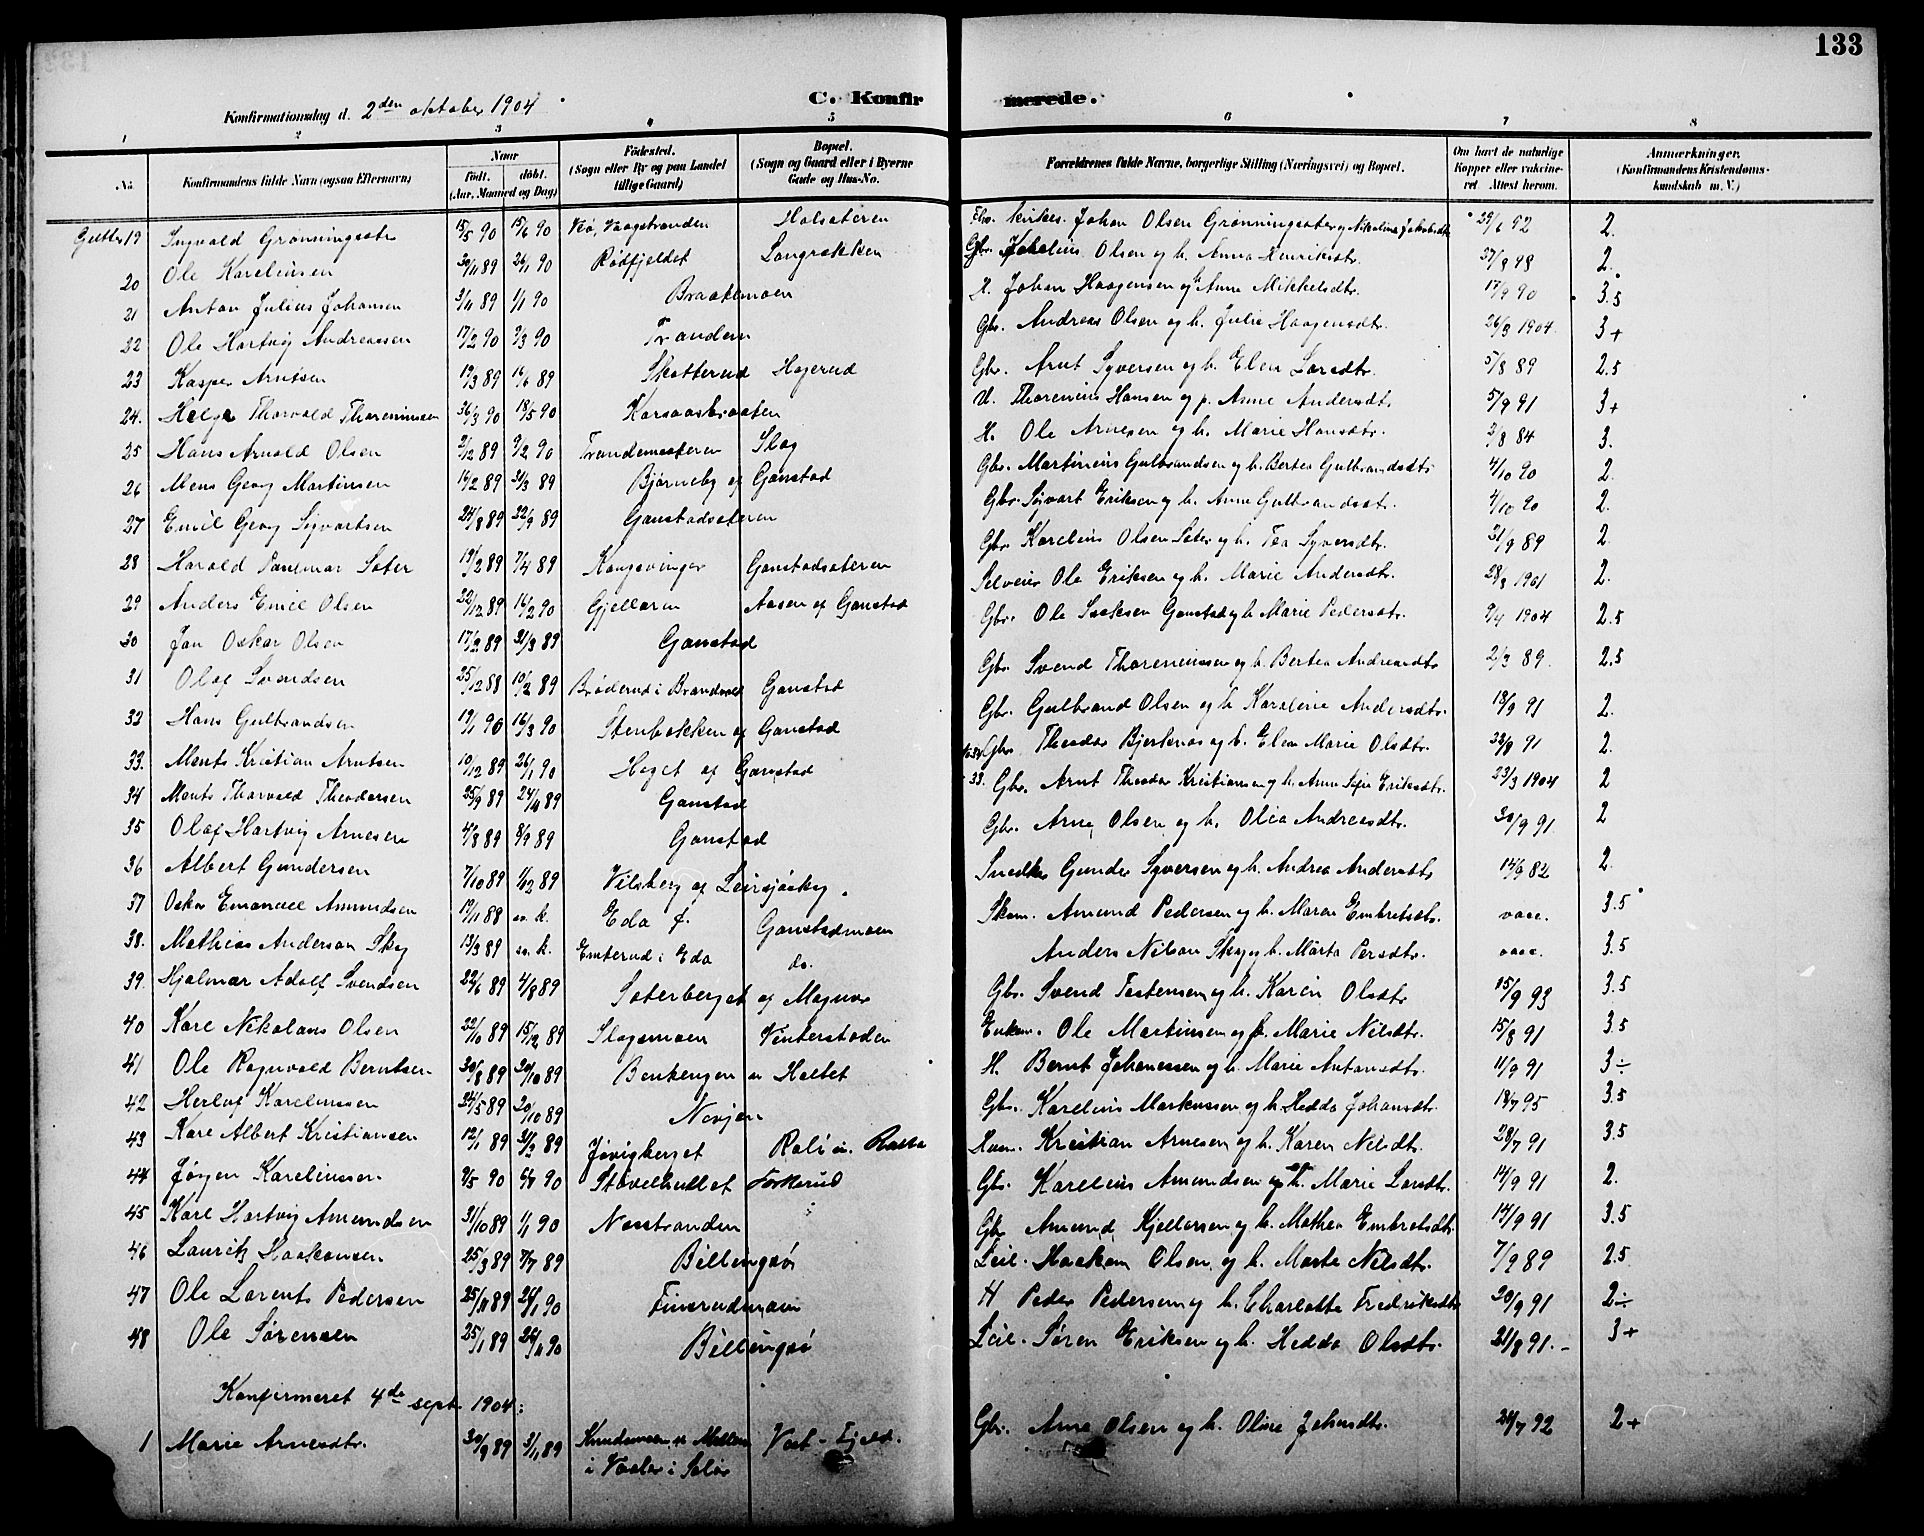 133
C. Konfirmerede.
Konfirmationsdag d. 2den oktober 1904
1 2 3 4 5 6 7 8
No. Konfirmandens fulde Navn (ogsaa Efternavn) Naar født. døbt. (Aar, Maaned og Dag) Fødested. (Sogn eller By og paa Landet tillige Gaard) Bopæl. (Sogn og Gaard eller i Byerne Gade og Hus-No. Forældrenes fulde Navne, borgerlige Stilling (Næringsvei) og Bopæl. Om havt de naturlige Kopper eller vakcineret Attest herom. Anmærkninger. (Konfirmandens Kristendomskundskab m. V.)
19 Ingvald Grønningsæter 15/5 90 15/6 90 Johan Olsen Grønningsæter og Nikoline Jakobsdtr 29/6 92 2.
20 Ole Karelinsen 30/11 89 26/1 90 Rødfjeldet Langrækken Gbr. Olsen og h. Anna Henriksdtr. 2.
21 Anton Julius Johansen 3/11 89 1/1 90 Braatemoen H. Johan Haagensen og Anne Mikkelsdtr. 17/9 90 3.5
22 Ole Hartvig Andreassen 17/2 90 Trandem Gbr. Andreas Olsen og h. Julie Haagensdtr. 26/3 1904. 3+
23 Kasper Arntsen 19/3 89 16/6 89 Skotterud Hagerud Gbr. Arnt Syversen og h. Elen Larsdtr. 5/8 89 2.5
24. Helge Thorvald Thoreniusen 26/3 90 18/5 90 Korsaasbraaten U. Thorenius Hansen og p. Anne Andersdtr. 5/9 91 3+
25 Hans Arnold Olsen 2/12 89 9/2 90 Trandemsæteren Slog H. Ole Arnesen og h. Marie Hansdtr. 84 3.
26 Mens Georg Martinsen 16/2 89 31/3 89 Bjørneby af Gaustad Gbr. Martinius Gulbrandsen og h. Bertea Gulbrandsdtr. 4/10 90 2.
27 Emil Georg Sigvartsen 24/8 89 22/9 89 Gaustadsæteren Gbr. Sigvart Eriksen og h. Anne Gulbrandsdtr. 4/10 90 2.
28 Harald Sæter 19/2 89 7/4 89 Kongsvinger Gaustadsæteren Gbr. Karelius Olsen Sæter og h. Tea Syversdtr. 21/9 89 2.
29 Anders Emil Olsen 22/12 89 16/2 90 Gjelleren Aasen af Gaustad Selveier Ole Eriksen og h. Marie Andersdtr. 1901 2.
30 Jan Oskar Olsen 17/2 89 31/3 89 Gaustad Gbr. Ole Isaksen Gaustad og h. Marie Pedersdtr. 1904 2.5
31 Olaf Svendsen 25/12 88 10/2 89 Brøderud i Brandvold Gaustad Gbr. Svend Thoreniussen og h. Bertea Andreasdtr. 2/3 89. 2.5
32 Hans Gulbrandsen 19/1 90 16/3 90 Stenbækken af Gaustad Gbr. Gulbrand Olsen og h. Karoline Andersdtr. 18/9 91 2.
33. Ments Kristian Arntsen 10/12 89 26/1 90 Haget af Gaustad Gbr. Theodor Bjerknæs og h. Elen Marie Olsdtr. 91 2.
34 Ments Thorvald Theodorsen 25/9 89 24/11 89 Gaustad 33. Gbr. Arnt Theodor Kristiansen og h. Anne Sofie Eriksdtr. 23/3 1904 2
35 Olaf Hartvig Arnesen 4/8 89 8/9 89 Gaustad Gbr. Arne Olsen og h. Olea Andreasdtr. 30/9 91. 2
36 Albert Gundersen 7/10 89 1/12 89 Vilsberg af Leirsjøskog. Snedker Gunder Syversen og h. Andrea Andersdtr. 14/9 82 2.
37 Oskar Emanuel Amundsen 19/11 88 sv. k. Eda f. Gaustadmoen Skom. Amund Pedersen og h. Maren Embretsdtr. vacc. 3.5
38. Mathias Anderson Skog 13/3 89 sv. k. Emterud i Eda do. Anders Nilson Skog og h. Märta Persdtr. vacc. 3.5
39. Hjalmar Adolf Svendsen 22/6 89 4/8 89 Sæterberget af Magnor Gbr. Svend Tostensen og h. Karen Olsdtr. 15/9 93 3.5
40 Kare Nikolaus Olsen 22/10 89 15/12 89 Slogsmoen Vinterstaden Enkem. Ole Martinsen og h. Marie Nilsdtr. 15/8 91 3.5
41 Ole Ragnvald Berntsen 30/8 89 20/10 89 Benkengen u. Holtet H. Bernt Johanessen og h. Marie Antonsdtr. 11/9 91 3÷
42 Herlof Karelinssen 24/5 89 20/10 89 Norjen Gbr. Karelius Markussen og h. Hedda Johansdtr. 18/7 95 3.5
43 Kare Albert Kristiansen 12/1 89 31/3 89 Jøvigberget Kristian Arnesen og h. Karen Nilsdtr. 28/7 91 3.5
44 Jørgen Kareliussen 2/5 90 90 Støvelhullet Taskerud Gbr. Karelius Amundsen og h. Marie Larsdtr. 14/9 91 2.
45 Karl Hartvig Amundsen 31/10 89 1/1 90 Næsstranden Gbr Amund Kjellersen og h. Mathea Embretsdtr. 14/9 91 3.5
46 Lauritz Haakonsen 25/3 89 7/7 89 Billingsø Leil. Haakon Olsen og h. Marte Nilsdtr. 7/9 89 2.5
47 Ole Lorents Pedersen 25/11 89 26/1 90 Finsrudmoen H Peder Pedersen og h. Charlotte Fredriksdtr 20/9 91 2÷
48 Ole Sørensen 25/1 89 90 Billingsø Leil. Søren Eriksen og h. Hedda Olsdtr. 21/8 91. 3+
Konfirmeret 4de sept. 1904:
1 Marie Arnesdtr. 30/9 89 3/11 89 i Vaaler i Solør Vest-Fjeld. Gbr. Arne Olsen og h. Oline Johnsdtr. 92 2+